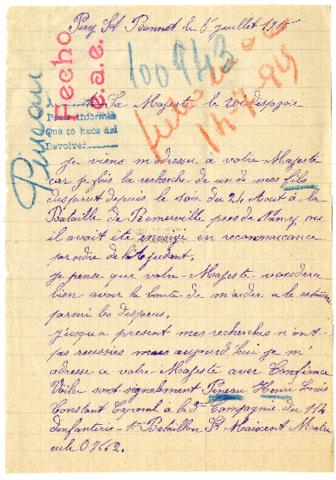 Puy St Bonnet le 5 juillet 1915
Fecho
c.a.e.
100943
Pineau
A
Sa Majesté le Roi d'Espagne
Pone informes
Que se hace así
Devolver
je viens m'adresser a votre Majeste
car je fais la recherche de un de mes fils
disparut depuis le soir du 24 Aout à la
Bataille de Remerville pres de Nancy ou
il avait été envoiyé en reconnaissance
par ordre de l'Ajudant.
je pense que votre Majesté voudera
bien avoir la bonté de m'aider a le retrouver
parmi les disparus.
jusqua present mes recherches n'ont
pas reussies mais aujourd'hui je m'
adresse a votre Majesté avec Confiance
Voila sont signalement Pineau Henri Louis
Constant Caporal à la 3e Compagnie du 114
d'infanterie 1er Bataillon St Maixent Matri
cule 07662.